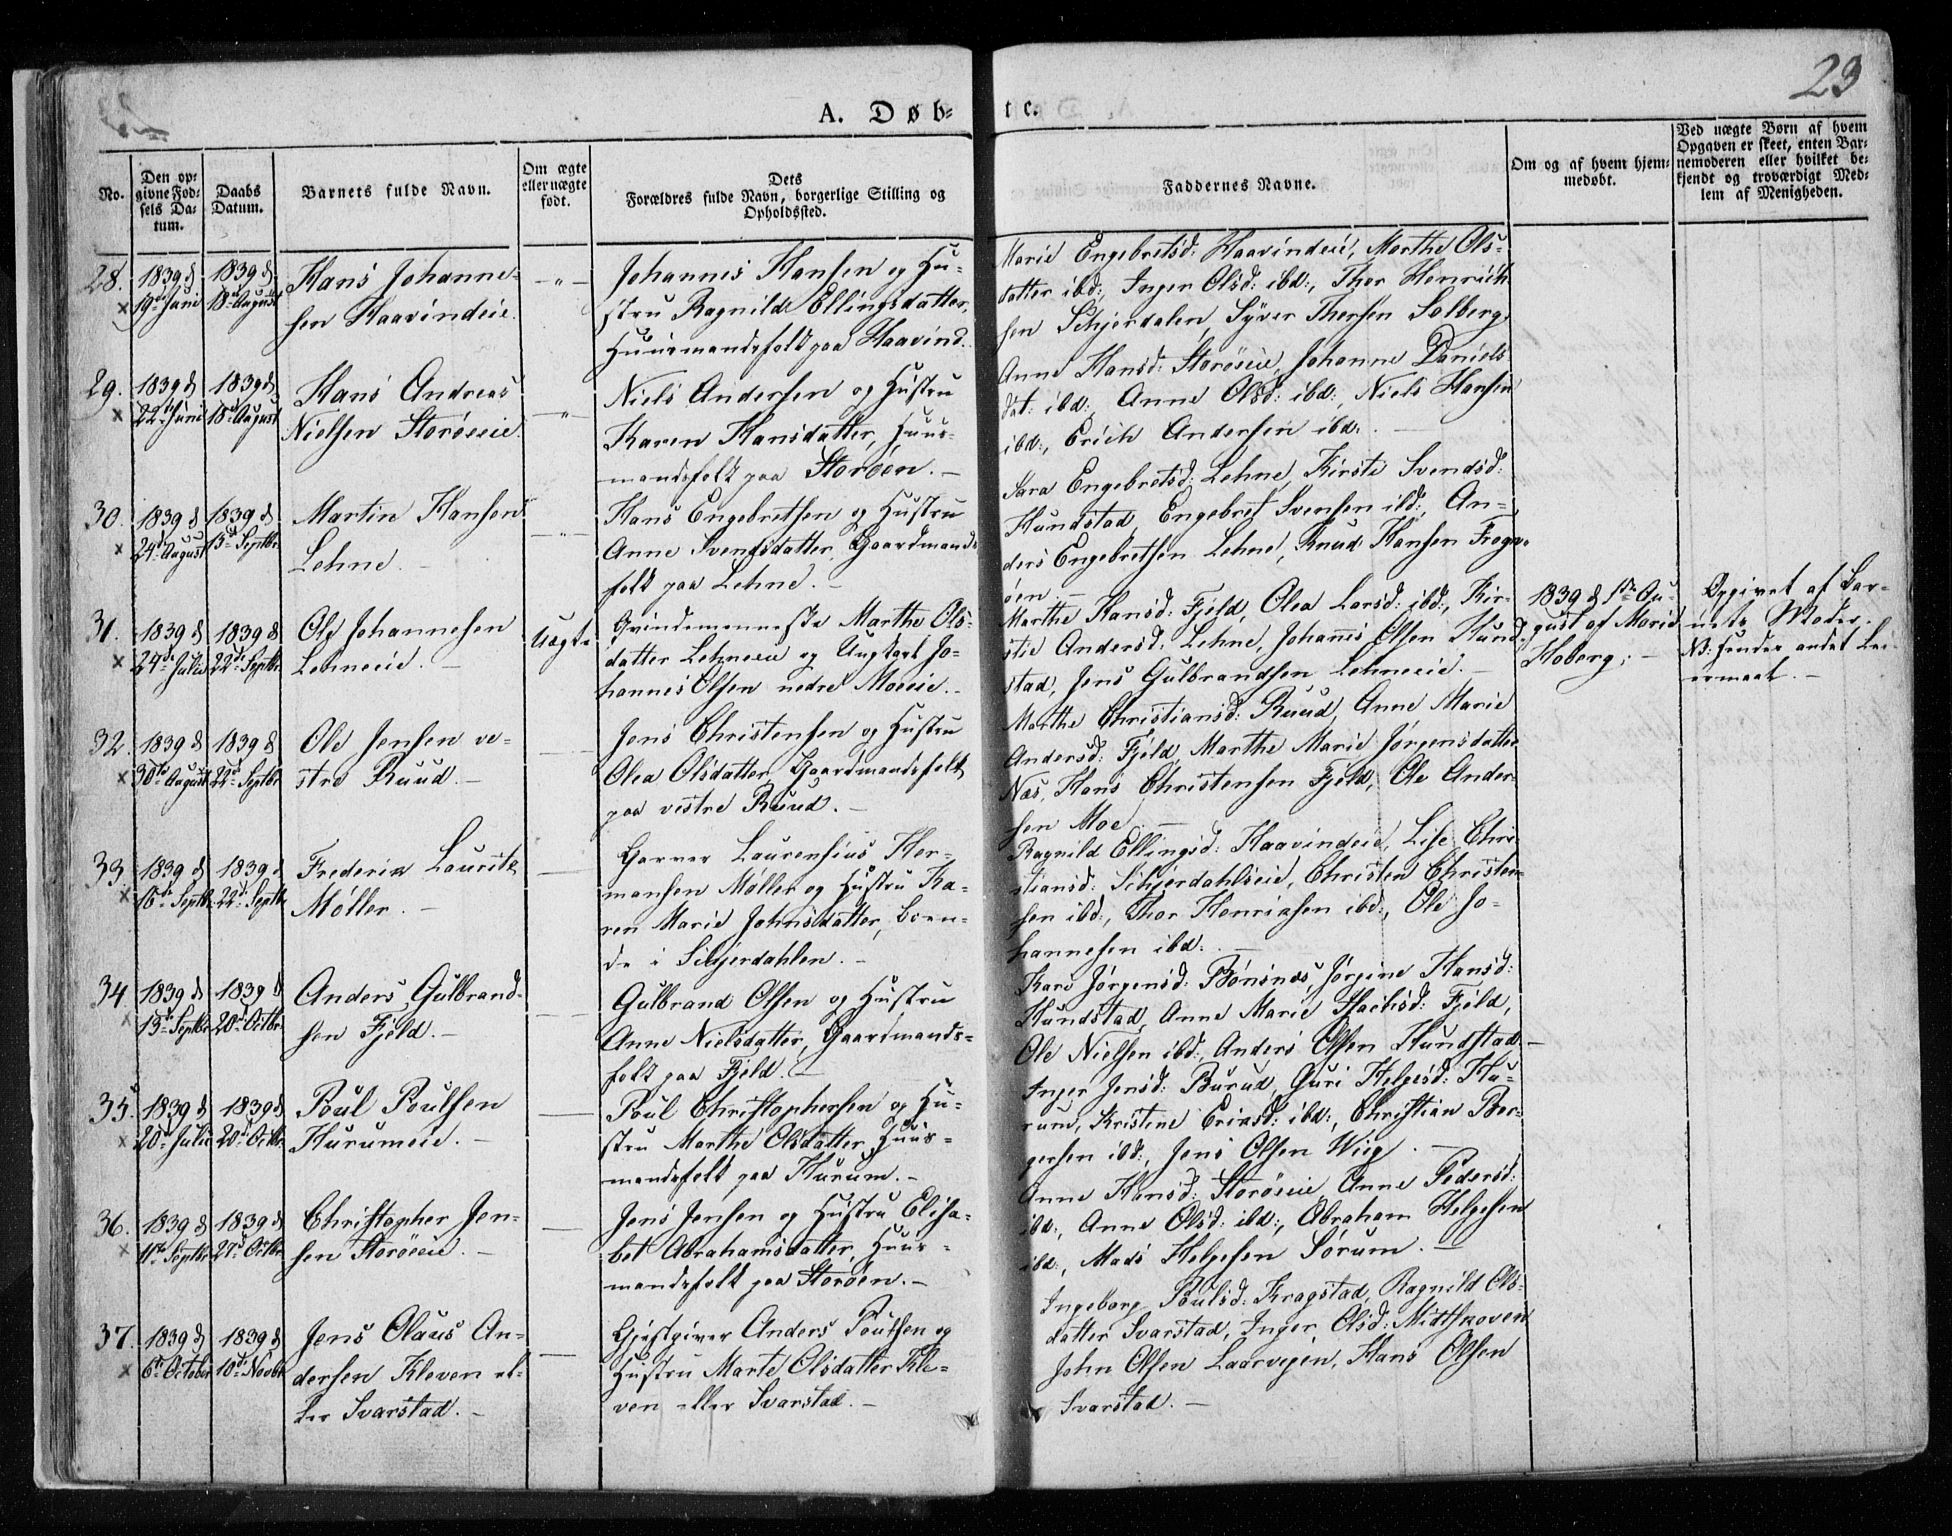 23
A. Døb-
te.
No.
Den op-
givne Fød-
sels Da-
tum.
Daabs
Datum.
Barnets fulde Navn.
Om ægte
eller uægte
født.
Dets
Forældres fulde Navn, borgerlige Stilling og
Opholdssted.
Faddernes Navne.
Om og af hvem hjem-
medøbt.
Ved uægte Børn af hvem
Opgaven er skeet, enten Bar-
nemoderen eller hvilket be-
kjendt og troværdigt Med-
lem af Menigheden.
28.
×
1839 d
19de Juni
1839 d
18de August
Hans Johanne-
sen Haavindeie.
- " -
Johannes Hansen og Hu-
stru Ragnild Ellingsdatter,
Huusmandsfolk paa Haavind.
Marie Engebretsd: Haavindeie, Marthe Ols-
datter ibd:, Inger Olsd: ibd:, Thor Henrik-
sen Schjerdalen, Syver Thersen Solberg.
29.
×
1839 d
22de Juni
1839 d
18de August
Hans Andreas
Nielsen Storøeie.
- " -
Niels Andersen og Hustru
Karen Hansdatter, Huus-
mandsfolk paa Storøen. -
Anne Hansd: Storøeie, Johanne Daniels-
dat: ibd:, Anne Olsd: ibd:, Niels Hansen
ibd:, Erich Andersen ibd:. -
30.
×
1839 d
24de August
1839 d
15de Septbr
Martin Hansen
Lehne. -
- " -
Hans Engebretsen og Hustru
Anne Svendsdatter, Gaardmands-
folk paa Lehne. -
Sara Engebretsd: Lehne, Kirsti Svendsd:
Hundstad, Engebret Svensen ibd:, An-
ders Engebretsen Lehne, Knud Hansen Frogn-
øen. -
31.
×
1839 d
24de Julii
1839 d
22de Septbr
Ole Johannesen
Lehneeie. -
Uægte
Qvindemenneske Marthe Ols-
datter Lehneeie og Ungkarl Jo-
hannes Olsen nedre Moeeie. -
Marthe Hansd: Fjeld, Olea Larsd: ibd:, Kir-
stie Andersd: Lehne, Johannes Olsen Hund-
stad, Jens Gulbrandsen Lehneeie. -
1839 d 1ste Au-
gust af Marie
Hoberg. -
Opgivet af Bar-
nets Moder.
NB: hendes andet Lei-
ermaal. -
32.
×
1839 d
30te August
1839 d
22de Septbr
Ole Jensen ve-
stre Ruud. -
Jens Christensen og Hustru
Olea Olsdatter, Gaardmandsfolk
paa vestre Ruud. -
Marthe Christiansd: Ruud, Anne Marie
Andersd: Fjeld, Marthe Marie Jørgensdatter
Næs, Hans Christensen Fjeld, Ole Ander-
sen Moe. -
33.
×
1839 d
16de Septbr
1839 d
22de Septbr
Frederik Lauritz
Møller. -
Garver Laurensius Her-
mansen Møller og Hustru Ka-
ren Marie Johnsdatter, boen-
de i Schjerdahlen. -
Ragnild Ellingsd: Haavindeie, Lise Chri-
stiansd: Schjerdahlseie, Christen Christen-
sen ibd:, Thor Henriksen ibd:, Ole Jo-
hannesen ibd:. -
34.
×
1839 d
13de Septbr
1839 d
20de Octbr
Anders Gulbrand-
sen Fjeld. -
Gulbrand Olsen og Hustru
Anne Nielsdatter, Gaardmands-
folk paa Fjeld. -
Kari Jørgensd: Bønsnæs, Jørgine Hansd:
Hundstad, Anne Marie Jacobsd: Fjeld,
Ole Nielsen ibd:, Anders Olsen Hundstad. -
35.
×
1839 d
20de Julii
1839 d
20de Octbr
Poul Poulsen
Hurumeie. -
Poul Christophersen og Hu-
stru Marthe Olsdatter, Huus-
mandsfolk paa Hurum. -
Inger Jensd: Burud, Guri Helgesd: Hu-
rum, Kristine Eriksd: ibd:, Christian Bør-
gersen ibd:, Jens Olsen Wiig. -
36.
×
1839 d
11te Septbr
1839 d
27de Octbr
Christopher Jen-
sen Storøeie. -
Jens Jensen og Hustru Elisa-
bet Abrahamsdatter, Huus-
mandsfolk paa Storøen. -
Anne Hansd: Storøeie, Anne Pedersd:
ibd:, Anne Olsd: ibd:, Abraham Helgesen
ibd:, Mads Helgesen Sørum. -
37.
×
1839 d
6te October
1839 d
10de Novbr
Jens Olaus An-
dersen Kleven el-
ler Svarstad. -
Gjestgiver Anders Poulsen og
Hustru Marte Olsdatter Kle-
ven eller Svarstad. -
Ingeborg Poulsd: Kragstad, Ragnild Ols-
datter Svarstad, Inger Olsd: Midtskoven
John Olsen Laarvegen, Hans Olsen
Svarstad. -